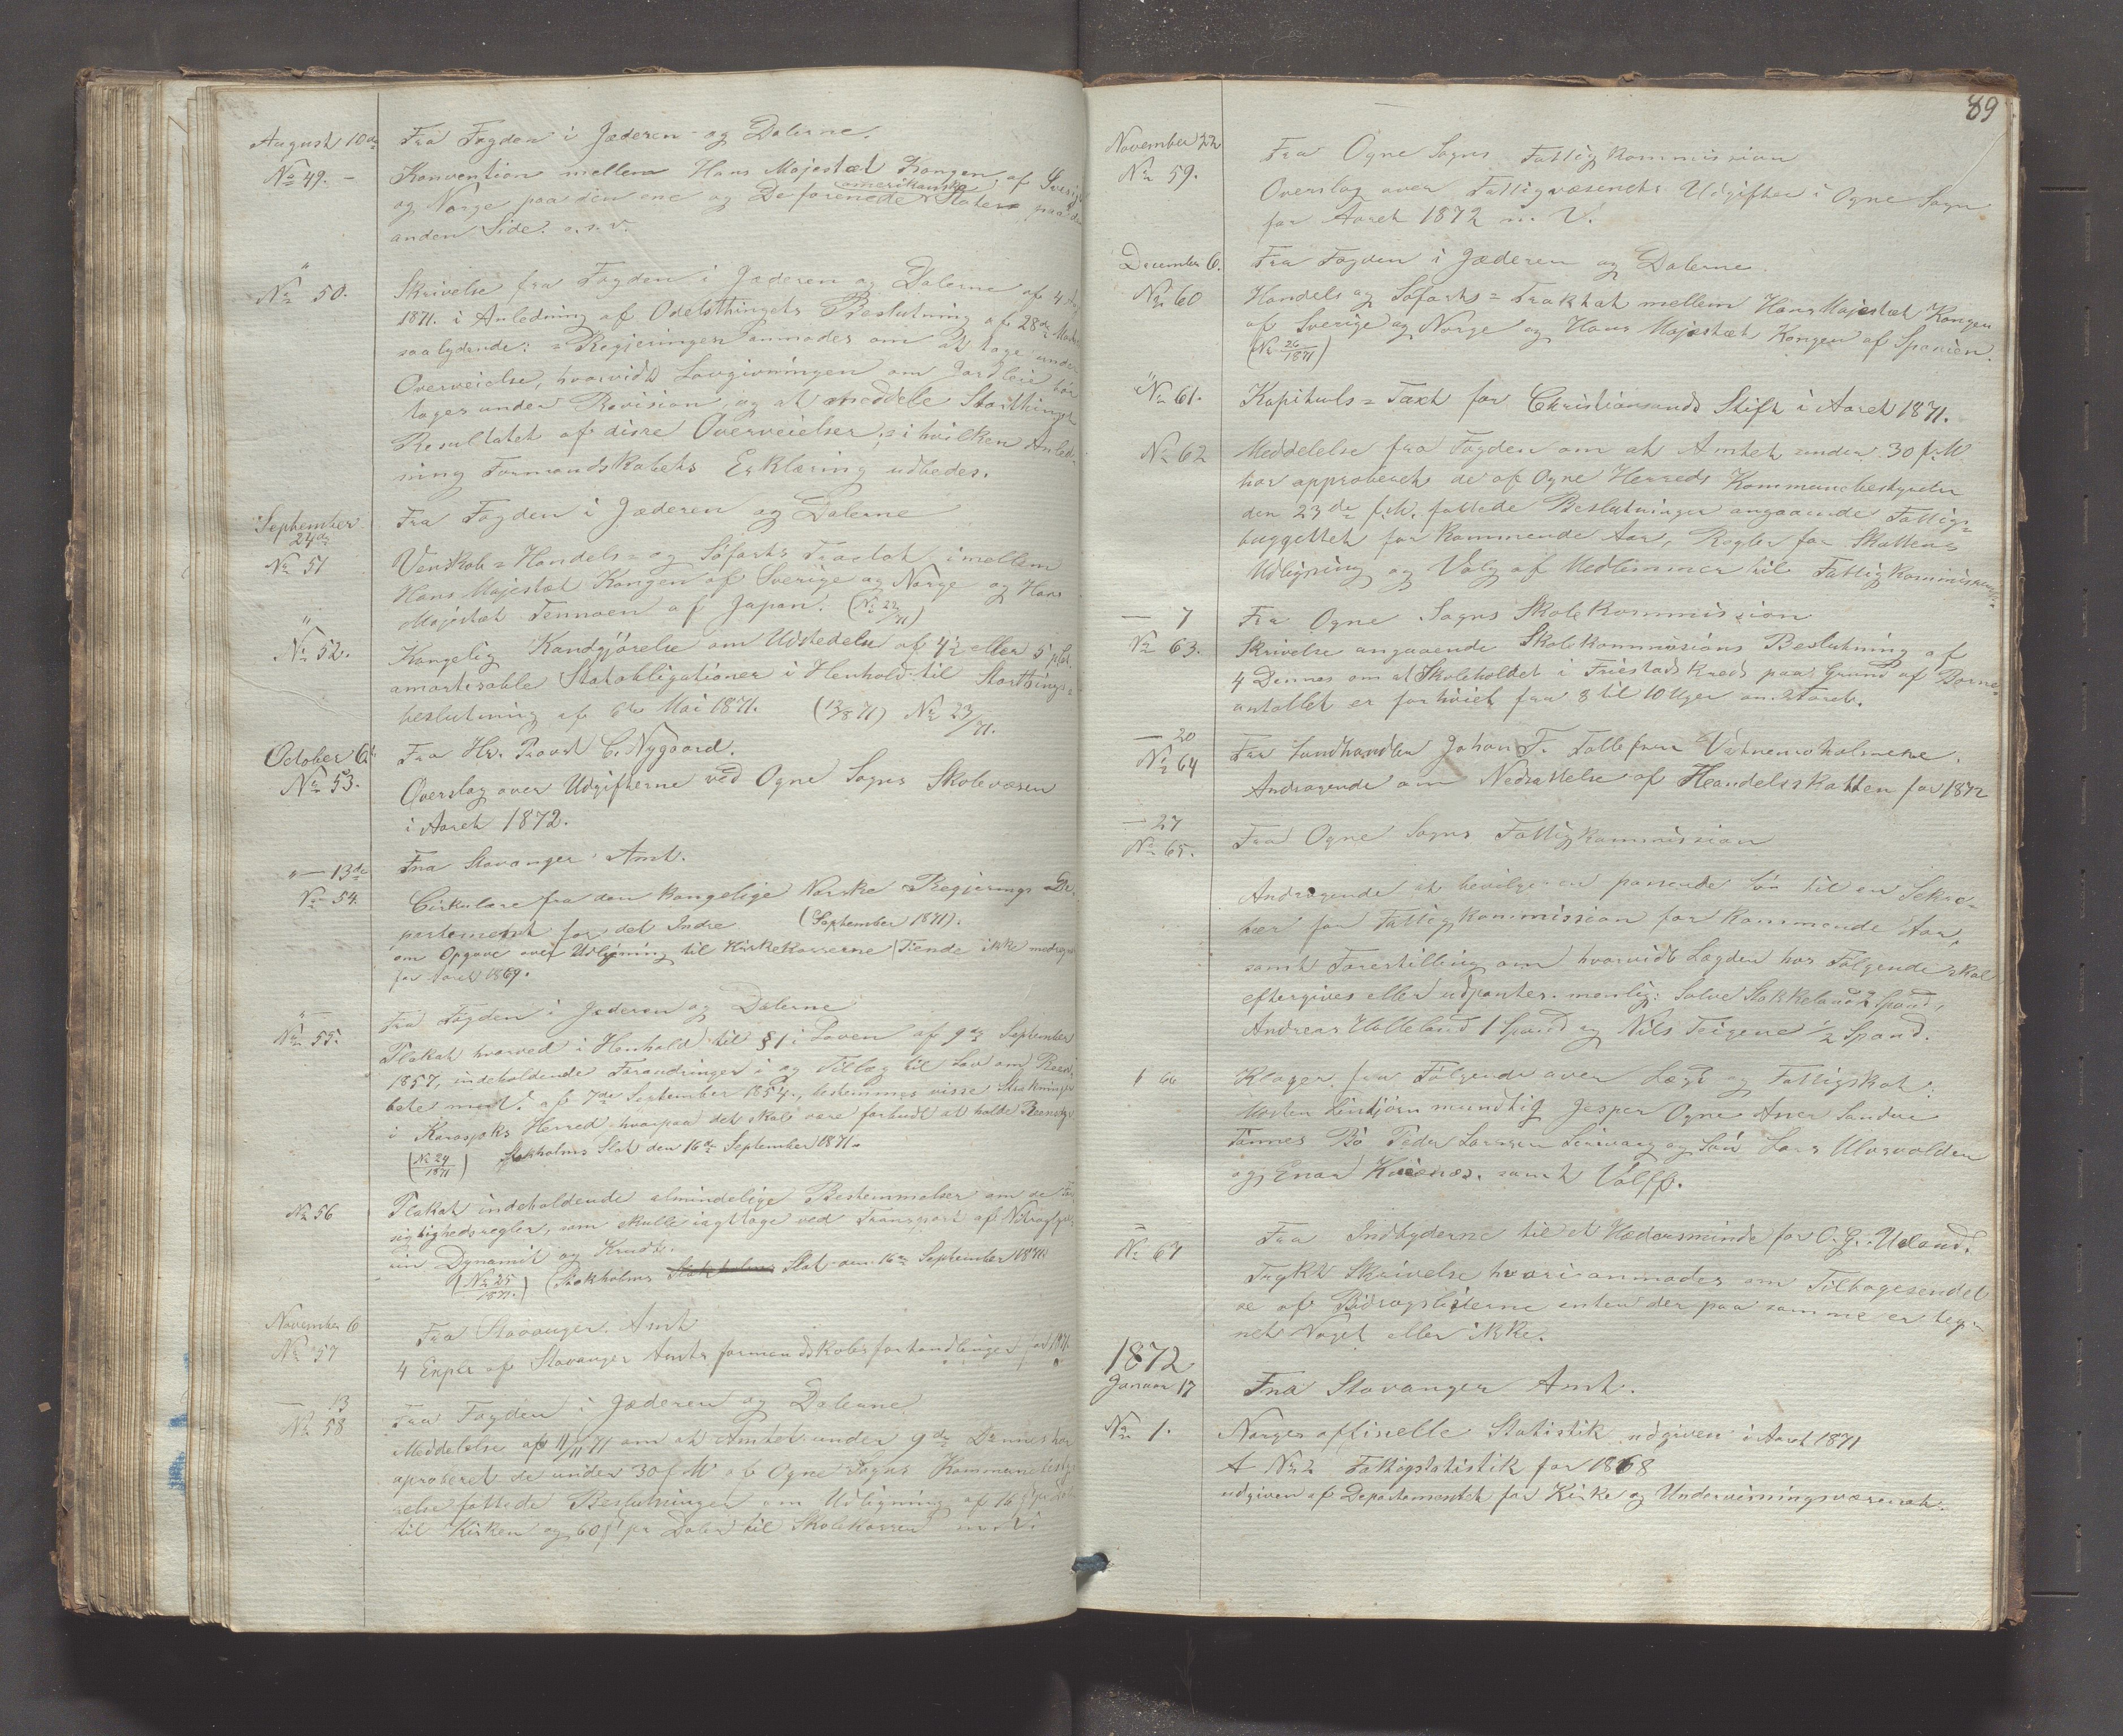 August 10de
Fra Fogden i Jæderen og Dalerne.
No 49. -
Konvention mellem Hans Majestæt Kongen, af Sverig
og Norge paa den ene og De forenede amerikanske Stater paa den
anden Side. o.s.v.
"
No 50.
Skrivelse fra Fogden i Jæderen og Dalerne af 4 Aug
1871. i Anledning af Odelsthingets Beslutning af 28de Marts
saalydende: = Regjeringen anmodes om at tage under
Overveielse, hvorvidt Lovgivningen om Jordleie bør
tages under Revision, og at meddele Storthinget
Resultatet af disse Overveielser, = i hvilken Anled-
ning Formandskabets Erklæring udbedes.
September
24de
Fra Fogden i Jæderen og Dalerne
No 51
Venskab = Handels = og Söfarts Tractat imellem
Hans Majestæt Kongen af Sverige og Norge og Hans
Majestæt Tennoen af Japan. (No 22/71)
"
No 52.
Kongelig Kundgjörelse om Udstedelse af 4½ eller 5 pCt.
amortisable Statobligationer i Henhold til Storthings=
beslutning af 6te Mai 1871. (12/8 71) No 23/71.
October 6te
Fra Hr. Provst C. Nygaard.
No 53.
Overslag over Udgifterne ved Ogne Sogns Skolevæsen
i Aaret 1872.
" — 13de
Fra Stavanger Amt.
No 54.
Cirkulære fra den kongelige Norske Regjerings De-
partement for det Indre (September 1871).
om Opgave over Udligning til Kirkekasserne (Tiende ikke medregnet
for Aaret 1869.
" —
Fra Fogden i Jæderen og Dalerne
No 55.
Plakat hvorved i Henhold til § 1 i Loven af 9de September
1857, indeholdende Forandringer i og Tillæg til Lov om
af 7de September 1854, bestemmes visse Strækninger
i Karasjoks Herred hvorpaa det skal være forbudt at holde Reensdyr
(No 24/1871) Stokholms Slot den 16de September 1871.
No 56
Plakat indeholdende almindelige Bestemmelser om de For-
sigtighedsregler, som skulle iagttages ved Transport af Nitroglyce-
rin Dynamit og Krudt.
(No 25/1871.) (Stokholms Slot den 16de September 1871
November 6
Fra Stavanger Amt
No 57
4 Expl af Stavanger Amts formandskabsforhandlinger for 1871.
— 13
Fra Fogden i Jæderen og Dalerne
No 58
Meddelelse af 11/11 71 om at Amtet under 9de Dennes har
aproberet de under 30 f M af Ogne Sogns Kommunebesty-
relse fattede Beslutninger om Udligning af 16
til Kirken og 60 ß pr Daler til Skolekassen m.V.
89
November 22
Fra Ogne Sogns Fattigkommission
No 59.
Overslag over Fattigvæsenets Udgifter i Ogne Sogn
for Aaret 1872 m.V.
December 6.
Fra Fogden i Jæderen og Dalerne.
No 60
Handels og Söfarts = Traktat mellem Hans Majestæt Kongen
af Sverige og Norge og Hans Majestæt Kongen af Spanien.
(No 26/1871)
"
No 61.
Kapituls = Taxt for Christiansands Stift i Aaret 1871.
No 62
Meddelelse fra Fogden om at Amtet under 30 f.M
har approberet de af Ogne Herreds Kommunebestyrelse
den 23de f.M. fattede Beslutninger angaaende Fattig=
buggettet for kommende Aar, Regler for Skattens
Udligning og Valg af Medlemmer til Fattigkommissionen.
— 7
Fra Ogne Sogns Skolekommission
No 63.
Skrivelse angaaende Skolekommisions Beslutning af
4 Dennes om at Skoleholdet i Friestad Kreds paa Grund af Borne-
antallet er forhöiet fra 8 til 10 Uger om Aaret.
— 20
Fra Landhandler Johan F. Tollefsen Vatnemoholmene.
No 64
Andragende om Nedsættelse af Handelsskatten for 1872
— 27
Fra Ogne Sogns Fattigkommission
No 65.
Andragende at bevilge en passende Lön til en Sekre-
tær for Fattigkommission for kommende Aar,
samt Forestilling om hvorvidt Lægden hos Følgende skal
eftergives eller udpantes. nemlig: Salve Stokkeland 2 Spand,
Andreas Holleland 1 Spand og Nils Teigene 1/2 Spand.
66
Klager fra Følgende over Lægd og Fattigskat:
mundtlig Jesper Ogne Aner Sandve
Tönnes Bö Peder Larssen og Sön Lars
og Enar samt Valff.
"
Fra Indbyderne til et Hædersminde for O. G. Ueland.
No 67
Trykt Skrivelse hvori anmodes om Tilbagesendel
se af Bidragslisterne enten der paa samme er teg-
net Noget eller ikke.
1872
Januar 17
Fra Stavanger Amt.
No 1.
Norges officielle Statistik udgiven i Aaret 1871
A No 2 Fattigstatistik for 1868
udgiven af Departementet for Kirke og Undervisningsvæsenet.